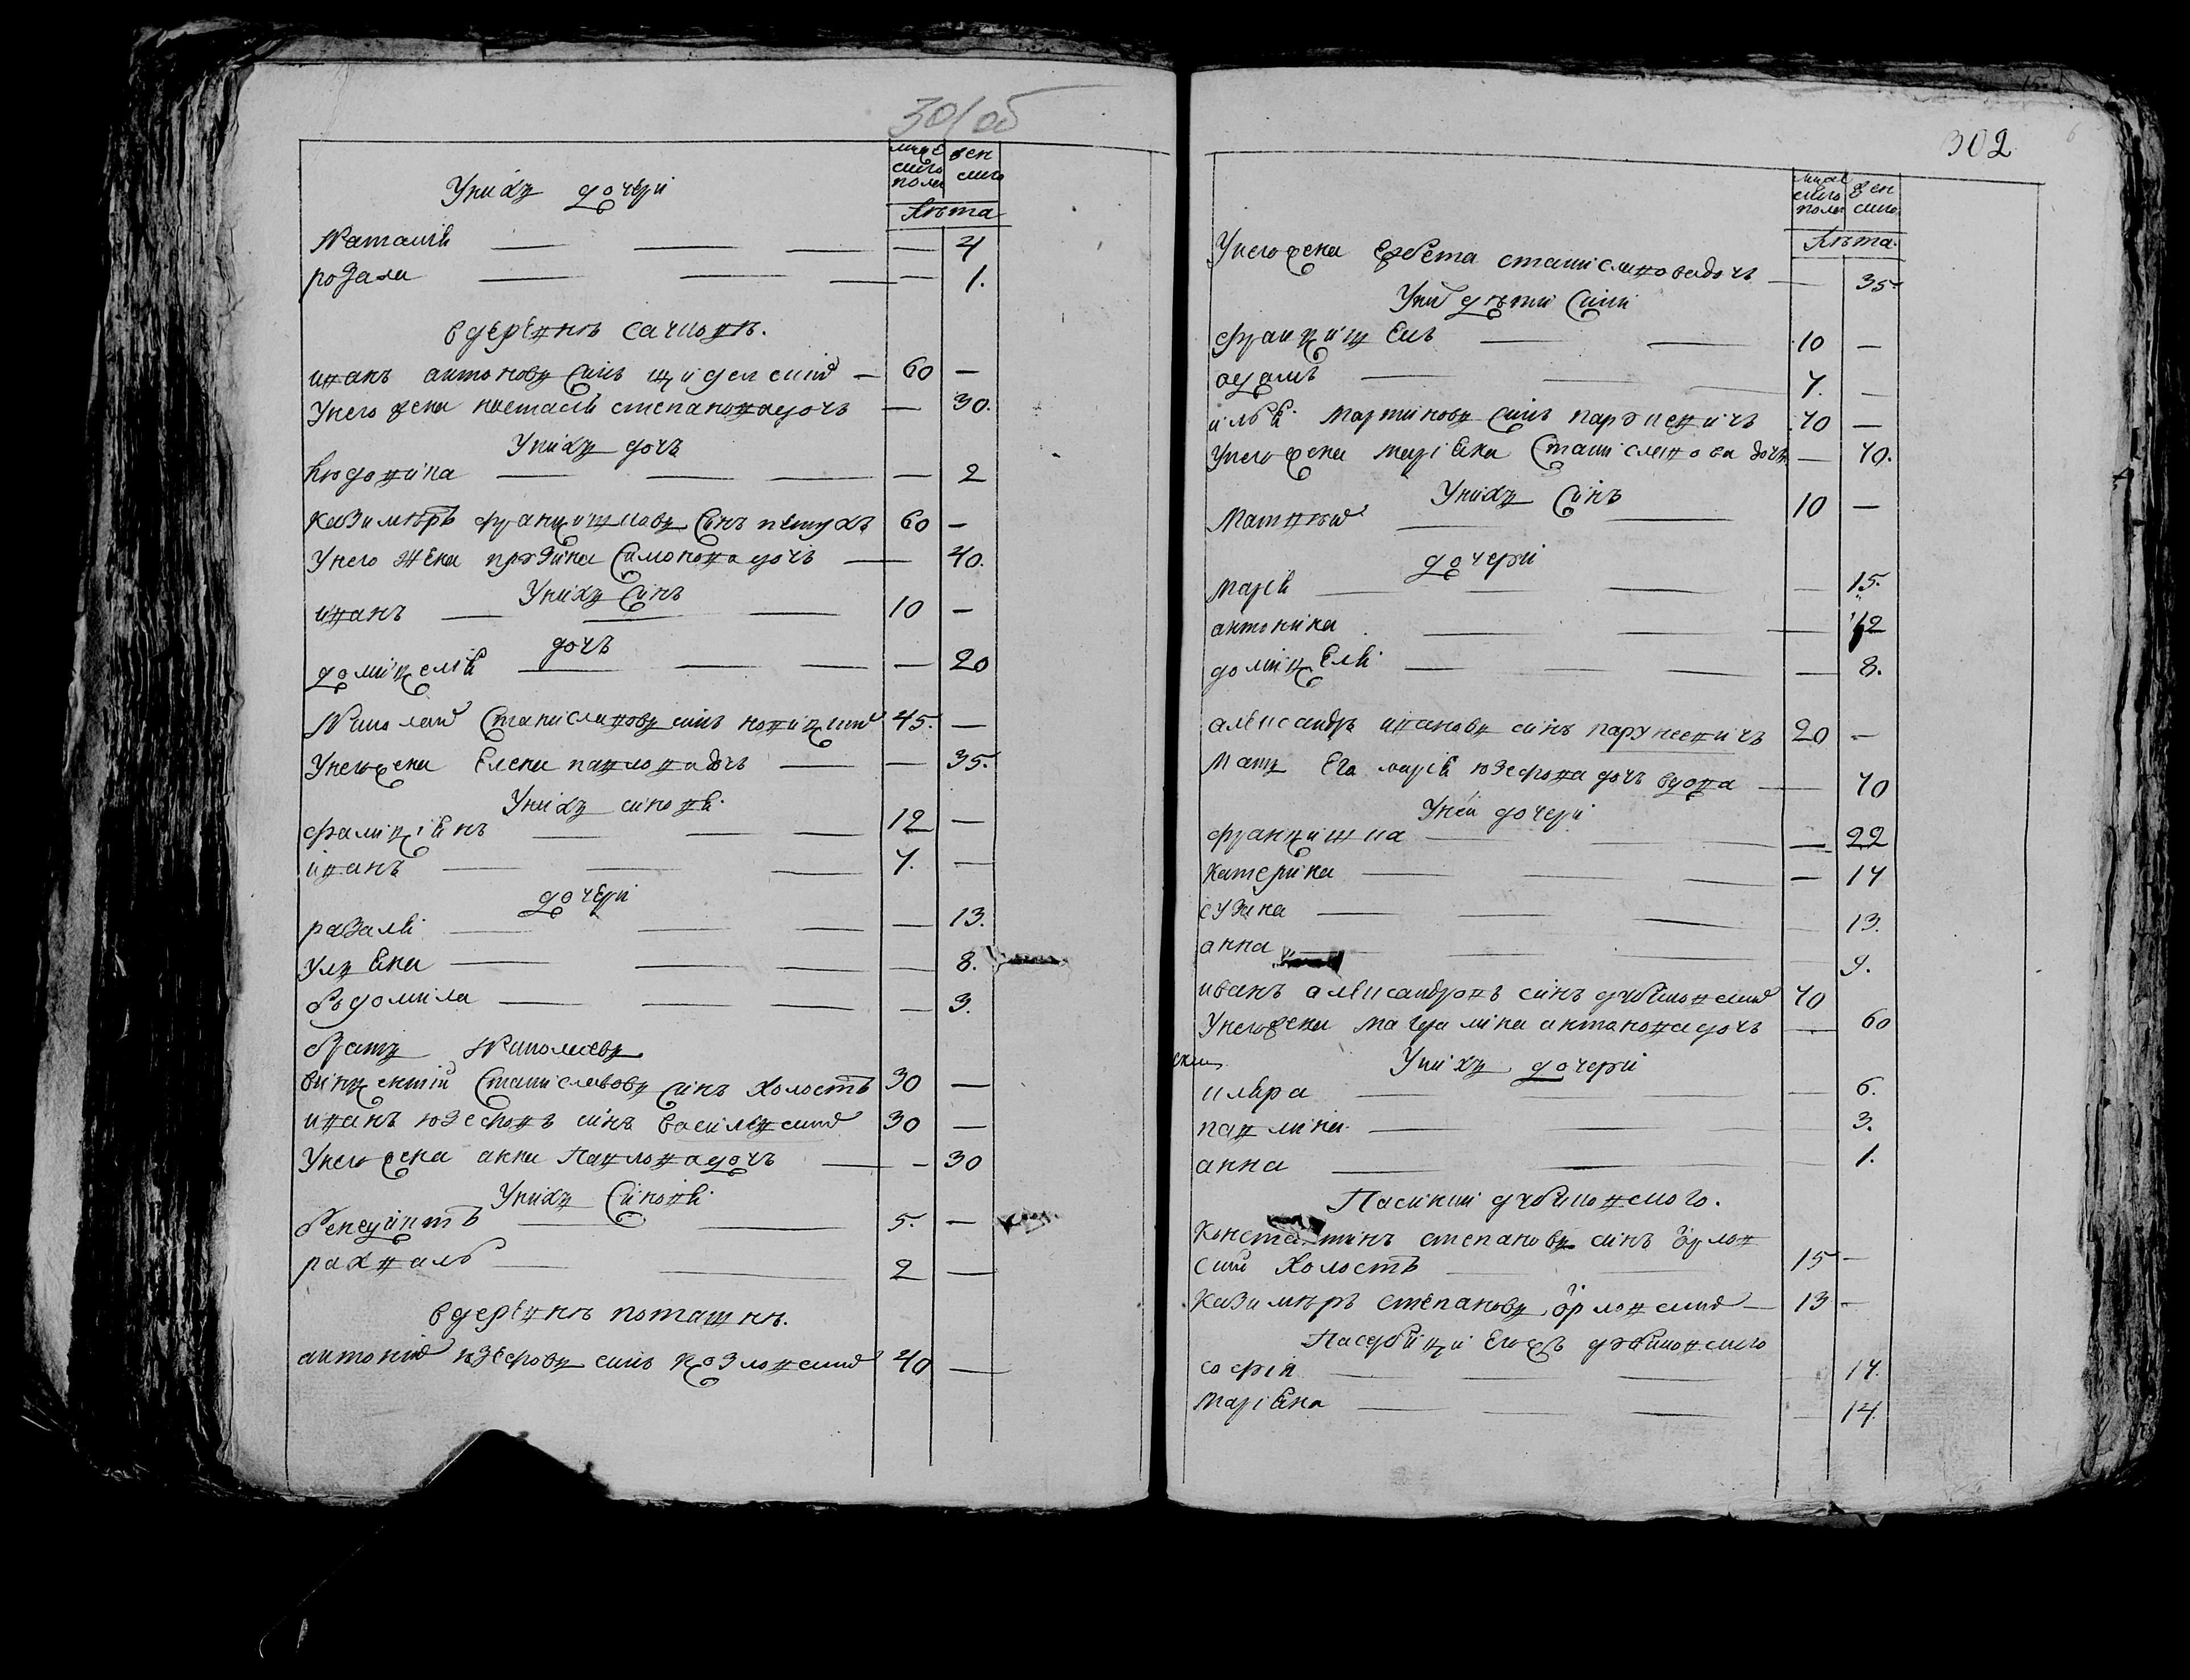 301 об
мужескаго пола
женскаго
Лета
У них дочери
Наталия — 4
розаля — 1.
в деревне Сачивке.
иван антонов син — 60 —
У него жена настасия степановадочь — 30.
У них дочь
людовика — 2
казимер францишков син петух 60 —
У него жена Симоновадочь — 40.
У них син
иван — 10 —
дочь
домицелия — 20
Николай Станиславов син новицкий 45. —
У него жена Елена павловадочь — 35.
У них синовя
фалициян — 12 —
иван — 7. —
дочери
разалия — 13.
улияна — 8.
людомила — 3.
Брат Николаев
винцентий Станиславов син Холост 30 —
иван юзефов син василевский 30 —
У него жена анна Павловадочь — 30
У них Синовя
Бенедикт — 5. —
рахваль — 2 —
в деревне поташне.
антоний юзефов син козловский 40 —
302
мужескаго пола
женскаго
Лета
У него жена станиславовадочь — 35.
У них дети Сини
францишек — 10 —
адам — 7. —
илья Мартинов син 40 —
У него жена марияна Станиславова дочь — 40.
У них Син
Матвей — 10 —
дочери
мария — 15.
антонина — 12
домицеля — 8.
александр иванов син 20 —
Мать Его мария юзефова дочь вдова — 40
У ней дочери
францишка — 22
катерина — 14
сузана — 13.
анна — 9.
иван александров син дубиковский 40
У него жена магдалина антоновадочь — 60
У них дочери
клара — 6.
павлина — 3.
анна — 1.
Пасинки дубиковского.
Константин степанов син орлов
ский Холост — 15 —
казимер степанов орловский — 13 —
Пасербици Егож дубиковскаго
софия — 14.
марияна — 14.